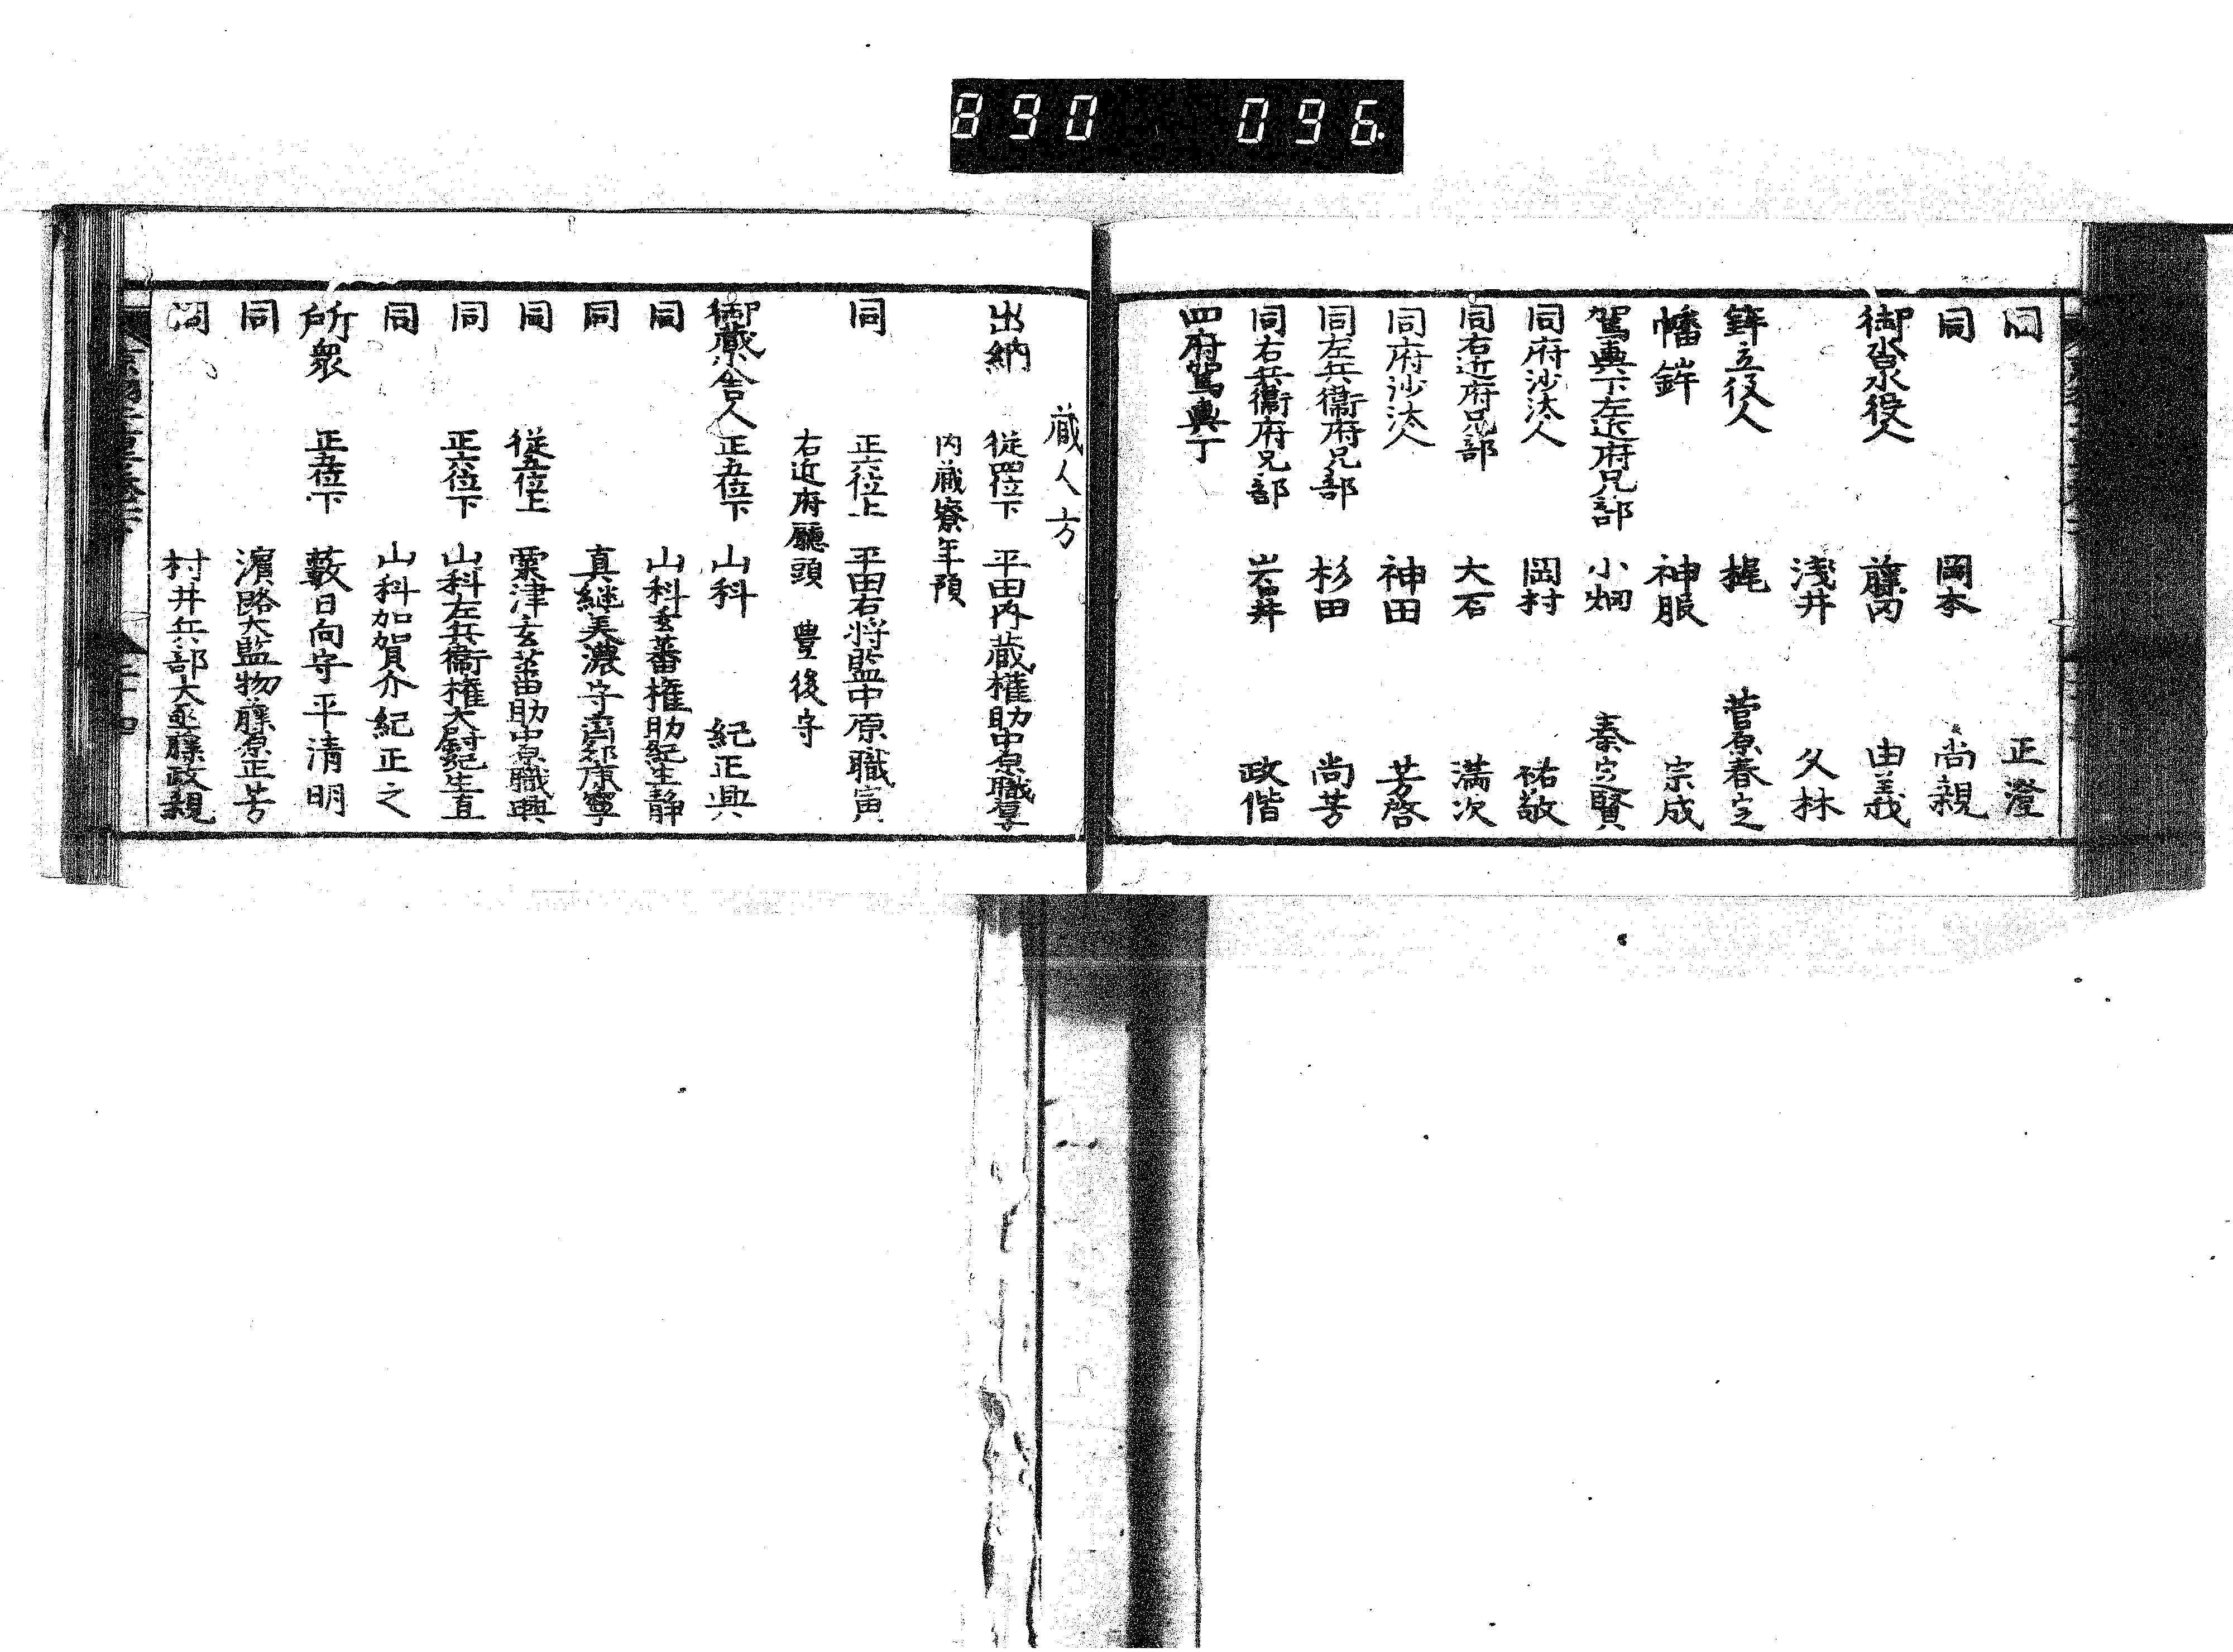 890 096.
同 正澄
同 岡本 尚親
御沓水役人 藤内 由義
淺井 久林
鉾立役人 梶 菅原春定
幡鉾 神服 宗成
駕輿丁左近府兄部 小畑 秦定賢
同府沙汰人 岡村 祐敬
同右近府兄部 大石 満次
同府沙汰人 神田 芳啓
同左兵衞府兄部 杉田 尚芳
同右兵衞府兄部 岩井 政偕
四府駕輿丁
藏人方
出納 從四位下 平田内藏權助中原職厚
内藏寮年預
同 正六位上 平田右將監中原職寅
右近府廳頭 豊後守
御藏小舎人 正五位下 山科 紀正興
同 山科玄蕃権助紀生静
同 真継美濃守齋部康寧
同 從五位上 粟津玄蕃助中原職興
同 正六位下 山科左兵衞権大尉紀生直
同 山科加賀介紀正之
所衆 正五位下 藪日向守平清明
同 濵路大監物藤原正芳
同 村井兵部大丞藤政親